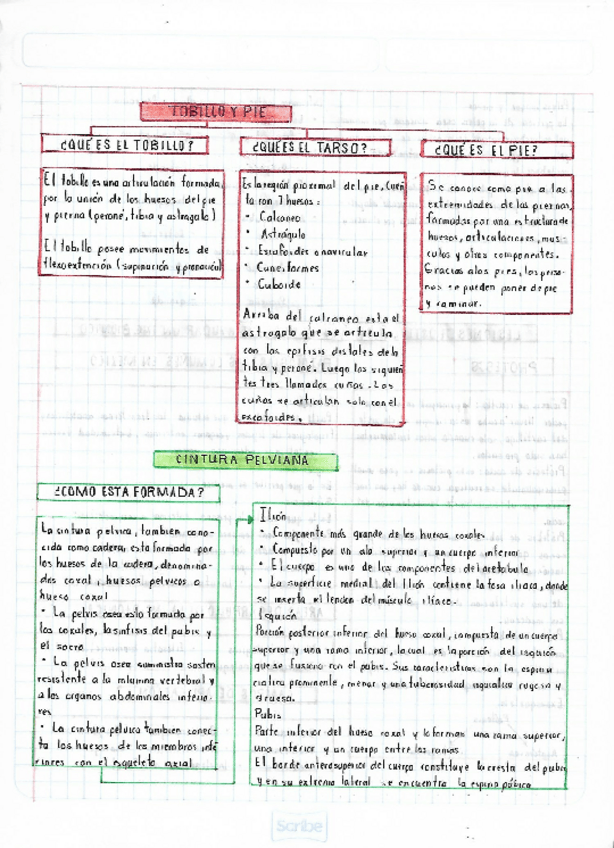 TOBILLO Y PIE
¿QUÉ ES EL TOBILLO?
El tobillo es una articulación formada
por la unión de los huesos del pie
y pierna (peroné, tibia y astragalo)
El tobillo posee movimientos de
flexoextención (supinación y pronación)
¿QUÉ ES EL TARSO?
Es la región proximal del pie, cuen
ta con 7 huesos:
• Calcaneo
• Astrágulo
• Escafoides o navicular
• Cuneiformes
• Cuboide
Arriba del calcaneo esta el
astrogalo que se articula
con las epifisis distales de la
tibia y peroné. Luego los siguien
tes tres llamados cuñas. Las
cuñas se articulan solo con el
escafoides.
¿QUÉ ES EL PIE?
Se conoce como pie a las
extremidades de las piernas,
formadas por una estructura de
huesos, articulaciones, mus
culos y otros componentes.
Gracias a los pies, las perso-
nas se pueden poner de pie
y caminar.
CINTURA PELVIANA
¿COMO ESTA FORMADA?
La cintura pelvica, tambien cono-
cida como cadera, esta formada por
los huesos de la cadera, denomina-
dos coxal, huesos pelvicos o
hueso coxal
• La pelvis osea esta formada por
los coxales, la sinfisis del pubis y
el sacro
• La pelvis osea suministra sosten
resistente a la columna vertebral y
a los organos abdominales inferio-
res
• La cintura pelvica tambien conec-
ta los huesos de los miembros infe
riores con el esqueleto axial
Ilión
• Componente más grande de los huesos coxales
• Compuesto por un ala superior y un cuerpo inferior
• El cuerpo es uno de los componentes del acetabulo
• La superficie medial del Ilión contiene la fosa iliaca, donde
se inserta el tendon del músculo ilíaco.
Isquión
Porción posterior inferior del hueso coxal, compuesta de un cuerpo
superior y una rama inferior, la cual es la porción del isquión
que se fusiona con el pubis. Sus caracteristicas son la espina
ciatica prominente, menor y una tuberosidad isquiatica rugosa y
gruesa.
Pubis
Parte inferior del hueso coxal y lo forman una rama superior,
una inferior y un cuerpo entre las ramas
El borde anterosuperior del cuerpo constituye la cresta del pubis
y en su extremo lateral se encuentra la espina púbica
Scribe